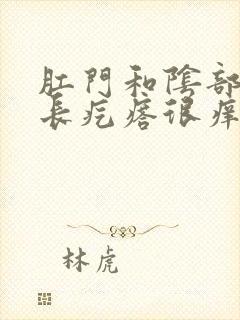 肛門和陰部
長疙瘩很癢
林虎